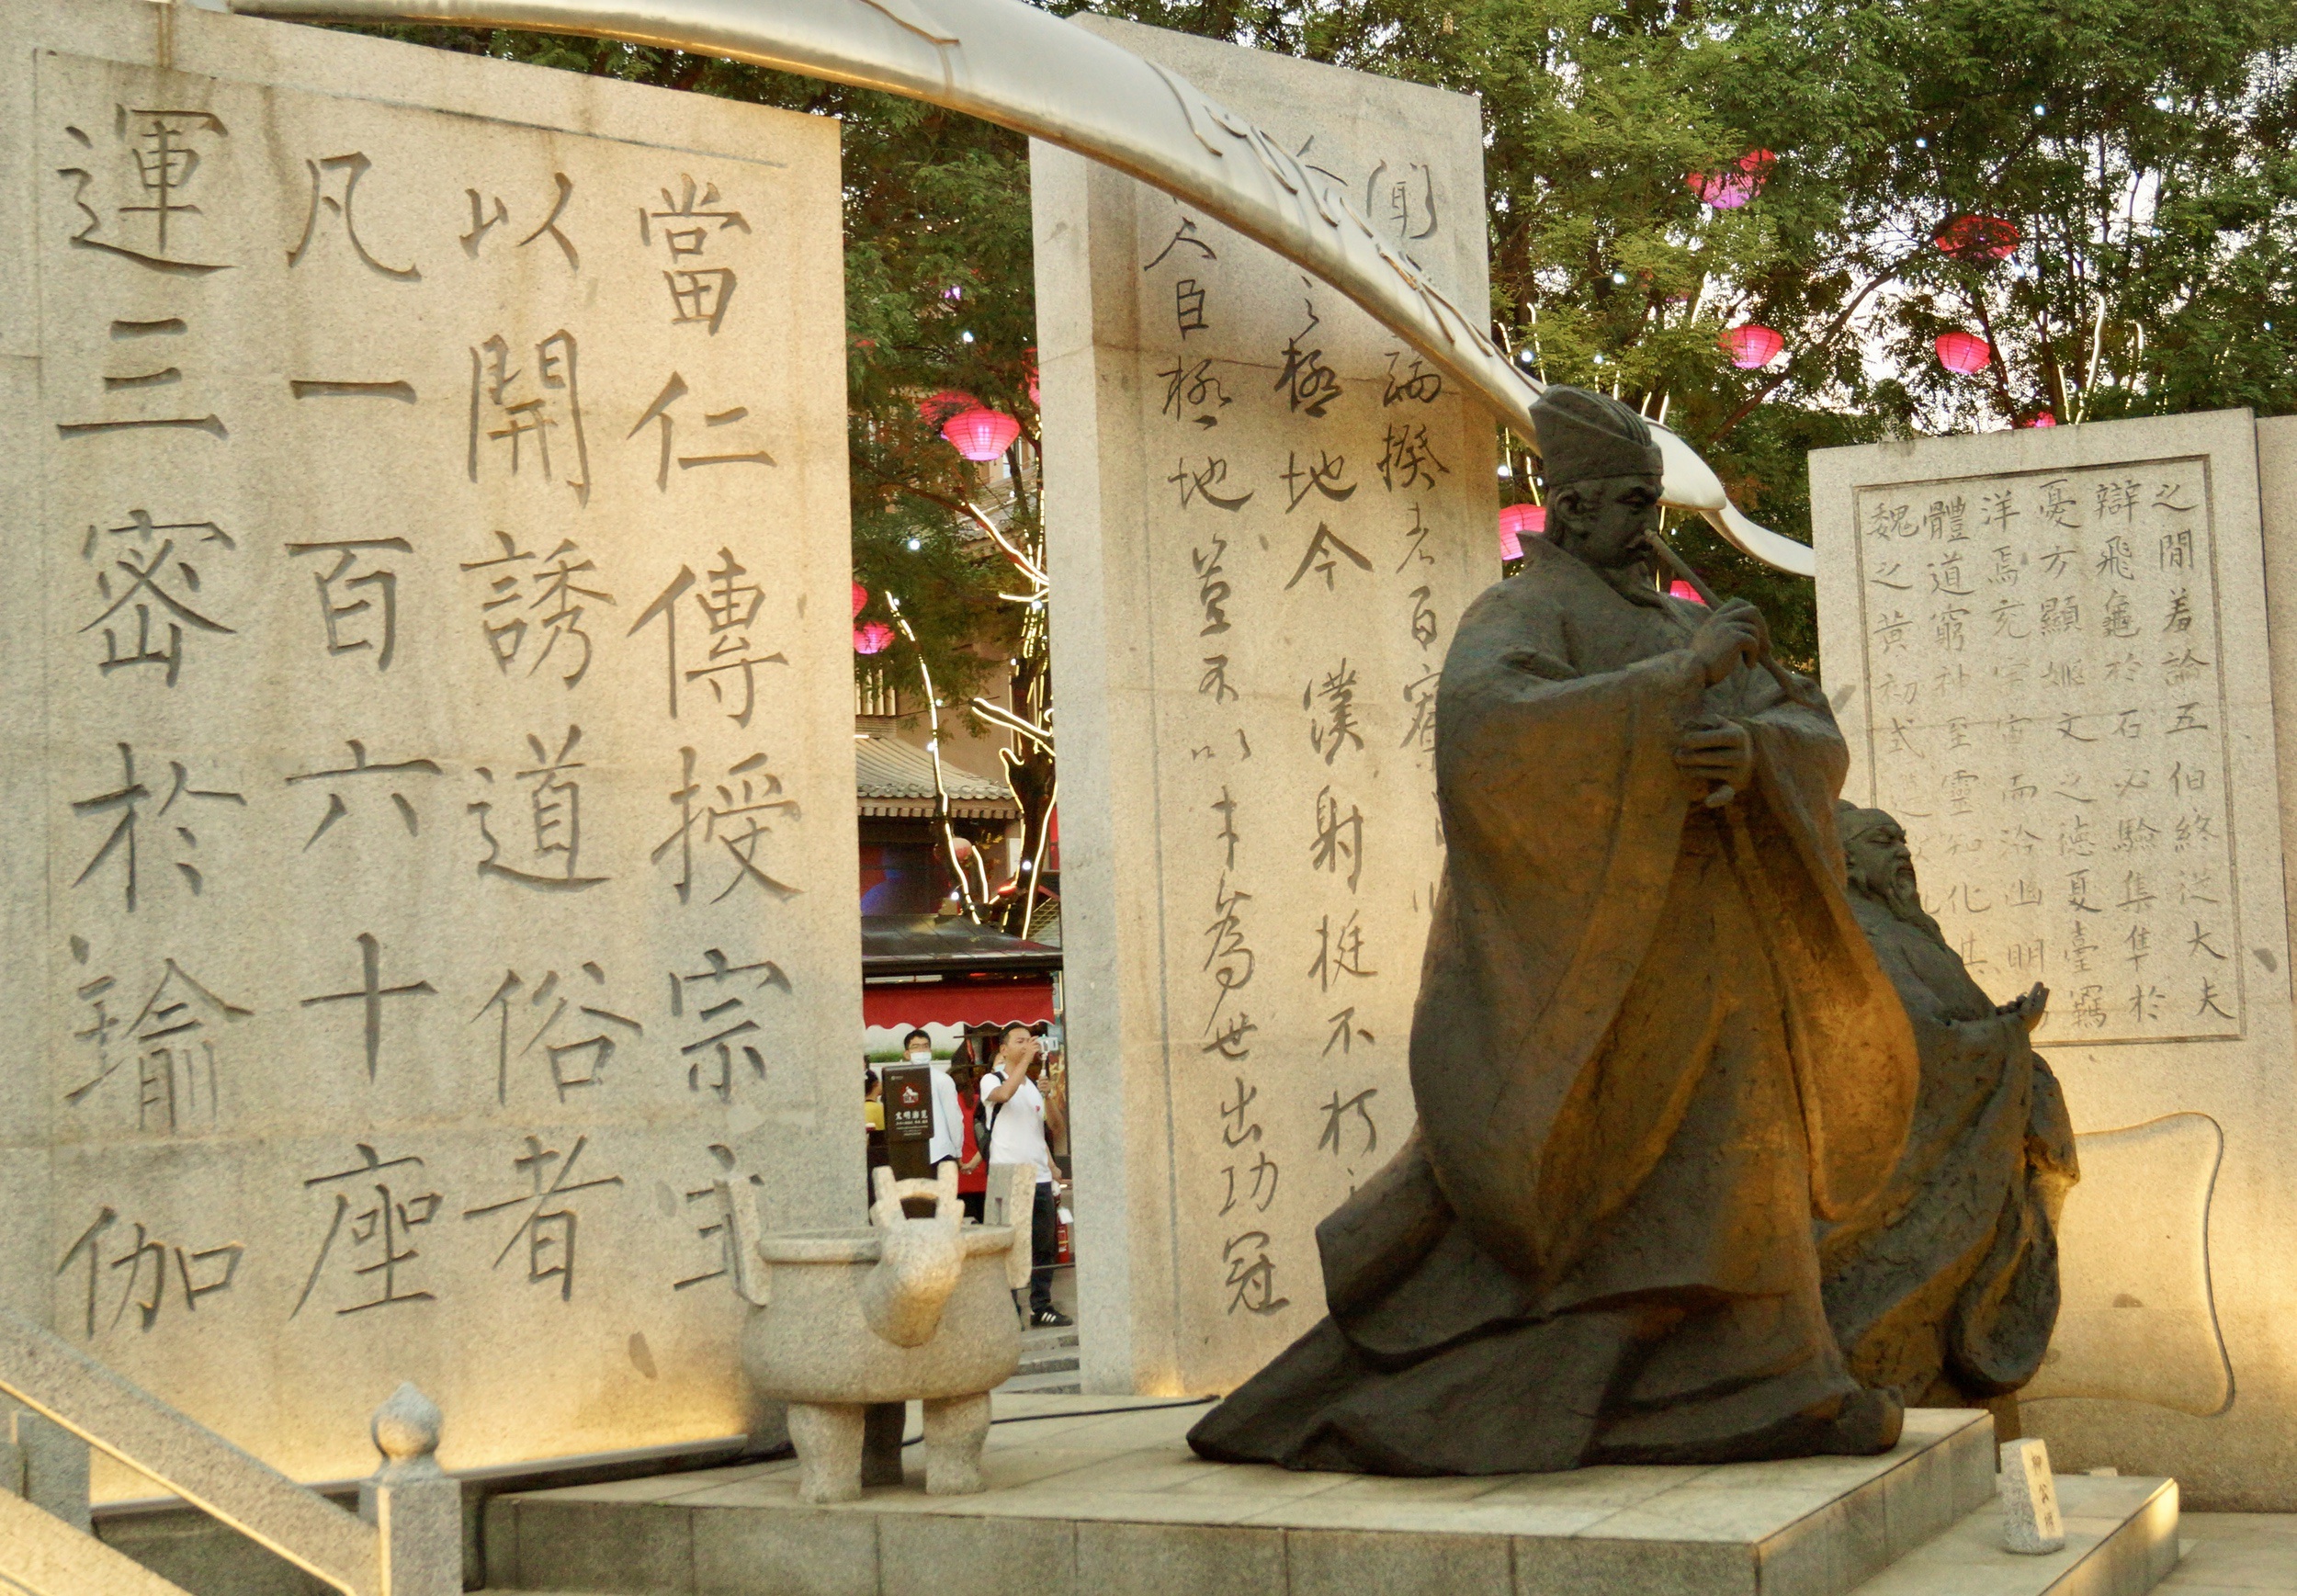 當仁傳授宗
以開誘道俗者
凡一百六十座
運三密於瑜伽
端揆者百寮
之極地今僕射挺不朽
人臣極地豈不以才為世出功冠
之間羞論五伯終從大夫
辯飛龜於石必驗集隼於
憂方顯姬文之德夏臺羈
洋焉充宇宙而洽幽明
體道窮神至靈知化其
魏之黃初式
柳公權